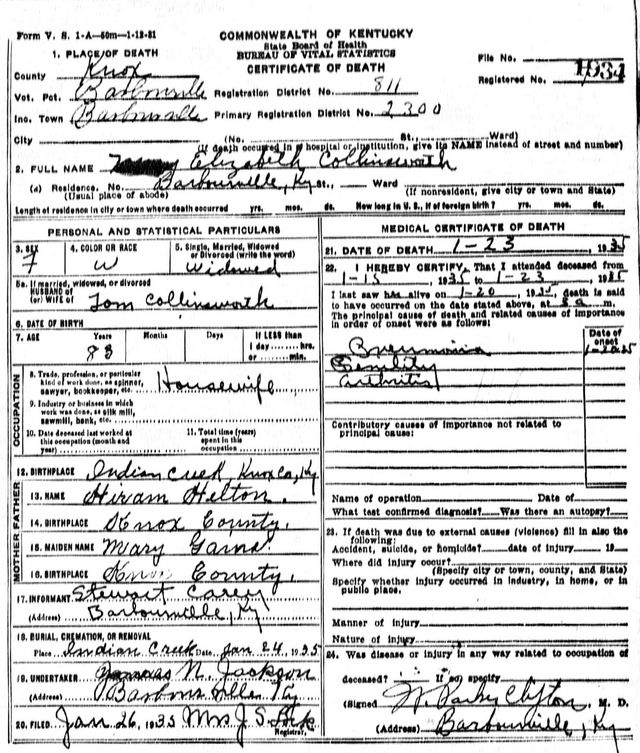 Form V. S. 1-A—50m—1-12-31
COMMONWEALTH OF KENTUCKY
State Board of Health
BUREAU OF VITAL STATISTICS
CERTIFICATE OF DEATH
File No.
1934
Registered No.
1. PLACE OF DEATH
County Knox
Vot. Pct. Barbourville Registration District No. 811
Inc. Town Barbourville Primary Registration District No. 2300
City (No. St., Ward)
(If death occurred in a hospital or institution, give its NAME instead of street and number)
2. FULL NAME Elizabeth Collinsworth
(a) Residence. No. Barbourville, Ky St., Ward
(Usual place of abode) (If nonresident, give city or town and State)
Length of residence in city or town where death occurred yrs. mos. ds. How long in U. S., if of foreign birth? yrs. mos. ds.
PERSONAL AND STATISTICAL PARTICULARS
3. SEX
F
4. COLOR OR RACE
W
5. Single, Married, Widowed
or Divorced (write the word)
Widowed
5a. If married, widowed, or divorced
HUSBAND of
(or) WIFE of Tom Collinsworth
6. DATE OF BIRTH
7. AGE Years Months Days If LESS than
1 day hrs.
or min.
83
OCCUPATION
8. Trade, profession, or particular
kind of work done, as spinner,
sawyer, bookkeeper, etc. Housewife
9. Industry or business in which
work was done, as silk mill,
sawmill, bank, etc.
10. Date deceased last worked at
this occupation (month and
year)
11. Total time (years)
spent in this
occupation
12. BIRTHPLACE Indian Creek Knox Co, Ky
FATHER
13. NAME Hiram Helton.
14. BIRTHPLACE Knox County.
MOTHER
15. MAIDEN NAME Mary
16. BIRTHPLACE Knox County.
17. INFORMANT Stewart Carey
(Address) Barbourville, Ky
18. BURIAL, CREMATION, OR REMOVAL
Place Indian Creek Date Jan 24, 1935
19. UNDERTAKER N. Jackson
(Address) Barbourville Ky
20. FILED Jan 26, 1935 Mrs J. S.
Registrar.
MEDICAL CERTIFICATE OF DEATH
21. DATE OF DEATH 1-23 1935
22. I HEREBY CERTIFY, That I attended deceased from
1-15, 1935 to 1-23, 1935
I last saw h alive on 1-20, 1935, death is said
to have occurred on the date stated above, at 8 a m.
The principal cause of death and related causes of importance
in order of onset were as follows:
Date of
onset
Pneumonia
Senility
arthritis
Contributory causes of importance not related to
principal cause:
Name of operation Date of
What test confirmed diagnosis? Was there an autopsy?
23. If death was due to external causes (violence) fill in also the
following:
Accident, suicide, or homicide? date of injury 19
Where did injury occur?
(Specify city or town, county, and State)
Specify whether injury occurred in industry, in home, or in
public place.
Manner of injury
Nature of injury
24. Was disease or injury in any way related to occupation of
deceased? If so, specify
(Signed) Clifton, M. D.
(Address) Barbourville, Ky